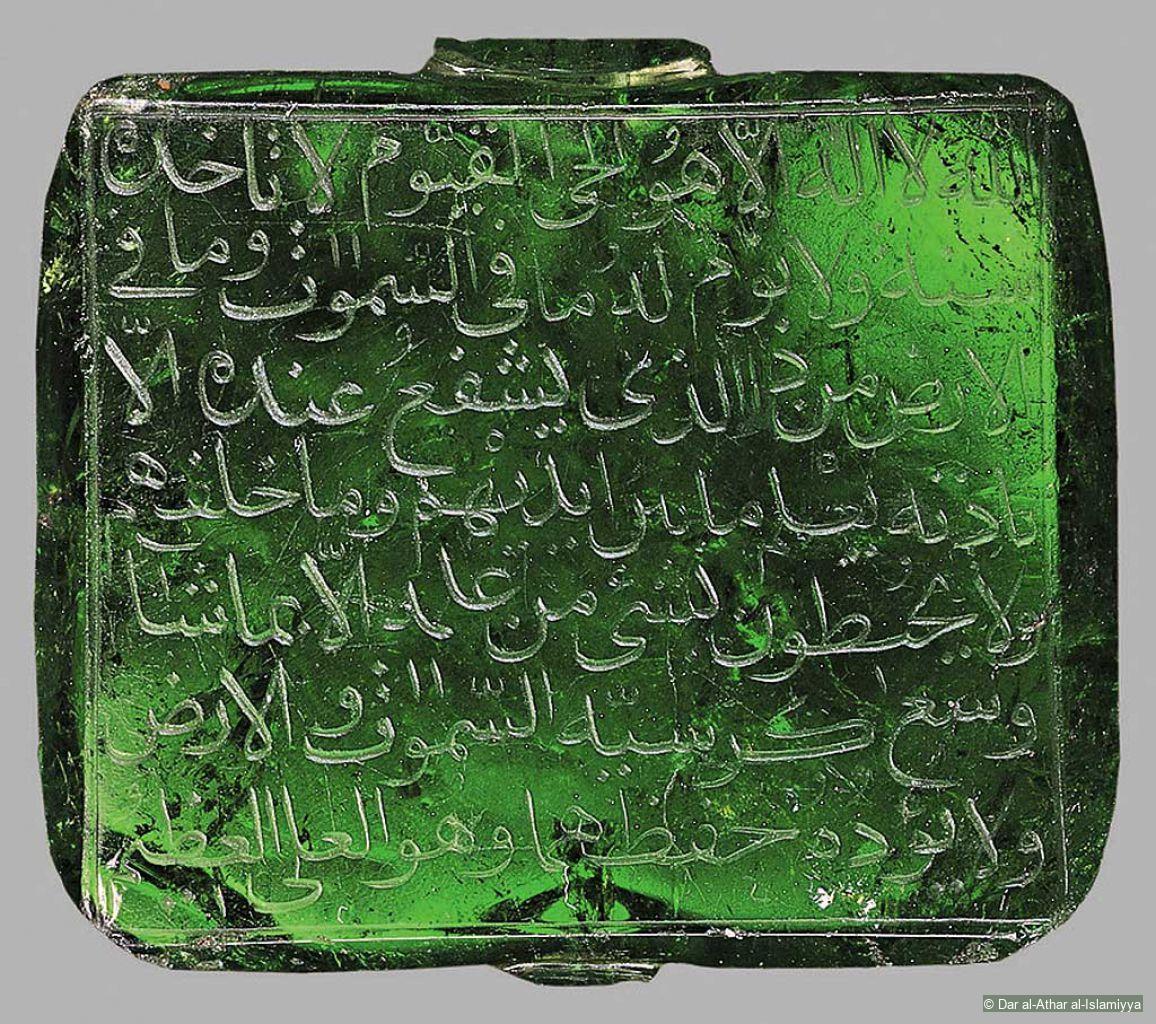 الله لا اله الّا هو الحى القيّوم لا تاخذه
سنة ولا نوم له ما فى السموت وما في
الارض من ذ الذى يشفع عنده الّا
باذنه يعلم ما بين ايديهم وما خلفهم
ولا يحيطون بشىء من علمه الّا بما شا
وسع كرسيّه السّموت و الارض
ولا يؤده حفظهما وهو العلى العظيم
© Dar al-Athar al-Islamiyya